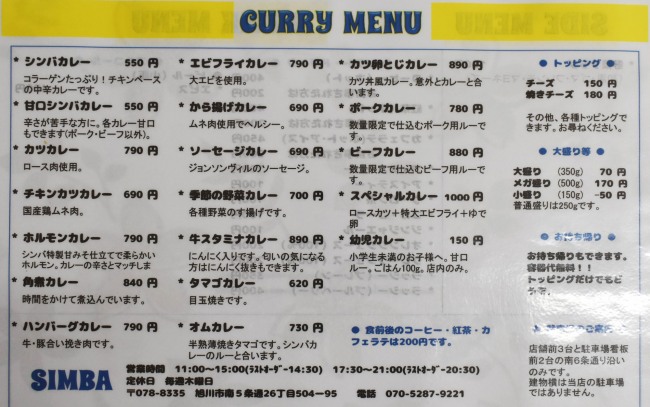 CURRY MENU
* シンバカレー 550 円
コラーゲンたっぷり！チキンベース
の中辛カレーです。
* 甘口シンバカレー 550 円
辛さが苦手な方に。各カレー甘口
もできます(ポーク・ビーフ以外)。
* カツカレー 790 円
ロース肉使用。
* チキンカツカレー 690 円
国産鶏ムネ肉。
* ホルモンカレー 790 円
シンバ特製甘みそ仕立てで柔らかい
ホルモン。カレーの辛さとマッチしま
* 角煮カレー 840 円
時間をかけて煮込んでいます。
* ハンバーグカレー 790 円
牛・豚合い挽き肉です。
* エビフライカレー 790 円
大エビを使用。
* から揚げカレー 690 円
ムネ肉使用でヘルシー。
* ソーセージカレー 690 円
ジョンソンヴィルのソーセージ。
* 季節の野菜カレー 700 円
各種野菜のす揚げです。
* 牛スタミナカレー 890 円
にんにく入りです。匂いの気になる
方はにんにく抜きもできます。
* タマゴカレー 620 円
目玉焼きです。
* オムカレー 730 円
半熟薄焼きタマゴです。シンバカ
レーのルーと合います。
* カツ卵とじカレー 890 円
カツ丼風カレー。意外とカレーと合
います。
* ポークカレー 780 円
数量限定で仕込むポーク用ルーで
す。
* ビーフカレー 880 円
数量限定で仕込むビーフ用ルーで
す。
* スペシャルカレー 1000 円
ロースカツ＋特大エビフライ＋ゆで
卵
* 幼児カレー 150 円
小学生未満のお子様へ。甘口
ルー。ごはん100g。店内のみ。
● 食前後のコーヒー・紅茶・カ
フェラテは200円です。
● トッピング ●
チーズ 150 円
焼きチーズ 180 円
その他、各種トッピングで
きます。お尋ねください。
● 大盛り等 ●
大盛り (350g) 70 円
メガ盛り (500g) 170 円
小盛り (150g) -50 円
普通盛りは250gです。
● お持ち帰り ●
お持ち帰りもできます。
容器代無料！！
トッピングだけでもど
店舗前3台と駐車場看板
前2台の南6条通り沿い
のみです。
建物横は当店の駐車場
ではありません。
SIMBA
営業時間 11:00～15:00(ﾗｽﾄｵｰﾀﾞｰ14:30) 17:30～21:00(ﾗｽﾄｵｰﾀﾞｰ20:30)
定休日 毎週木曜日
〒078-8335 旭川市南5条通26丁目504-95 電話 070-5287-9221